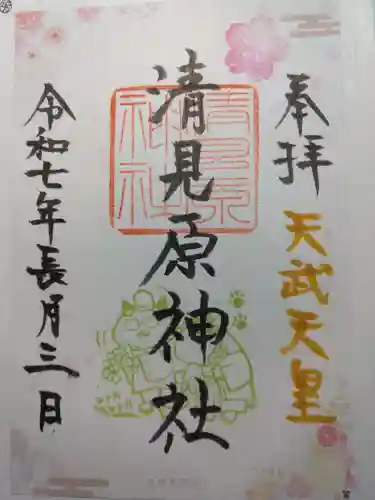 奉拝 天武天皇
清見原神社
令和七年長月三日
清見原神社